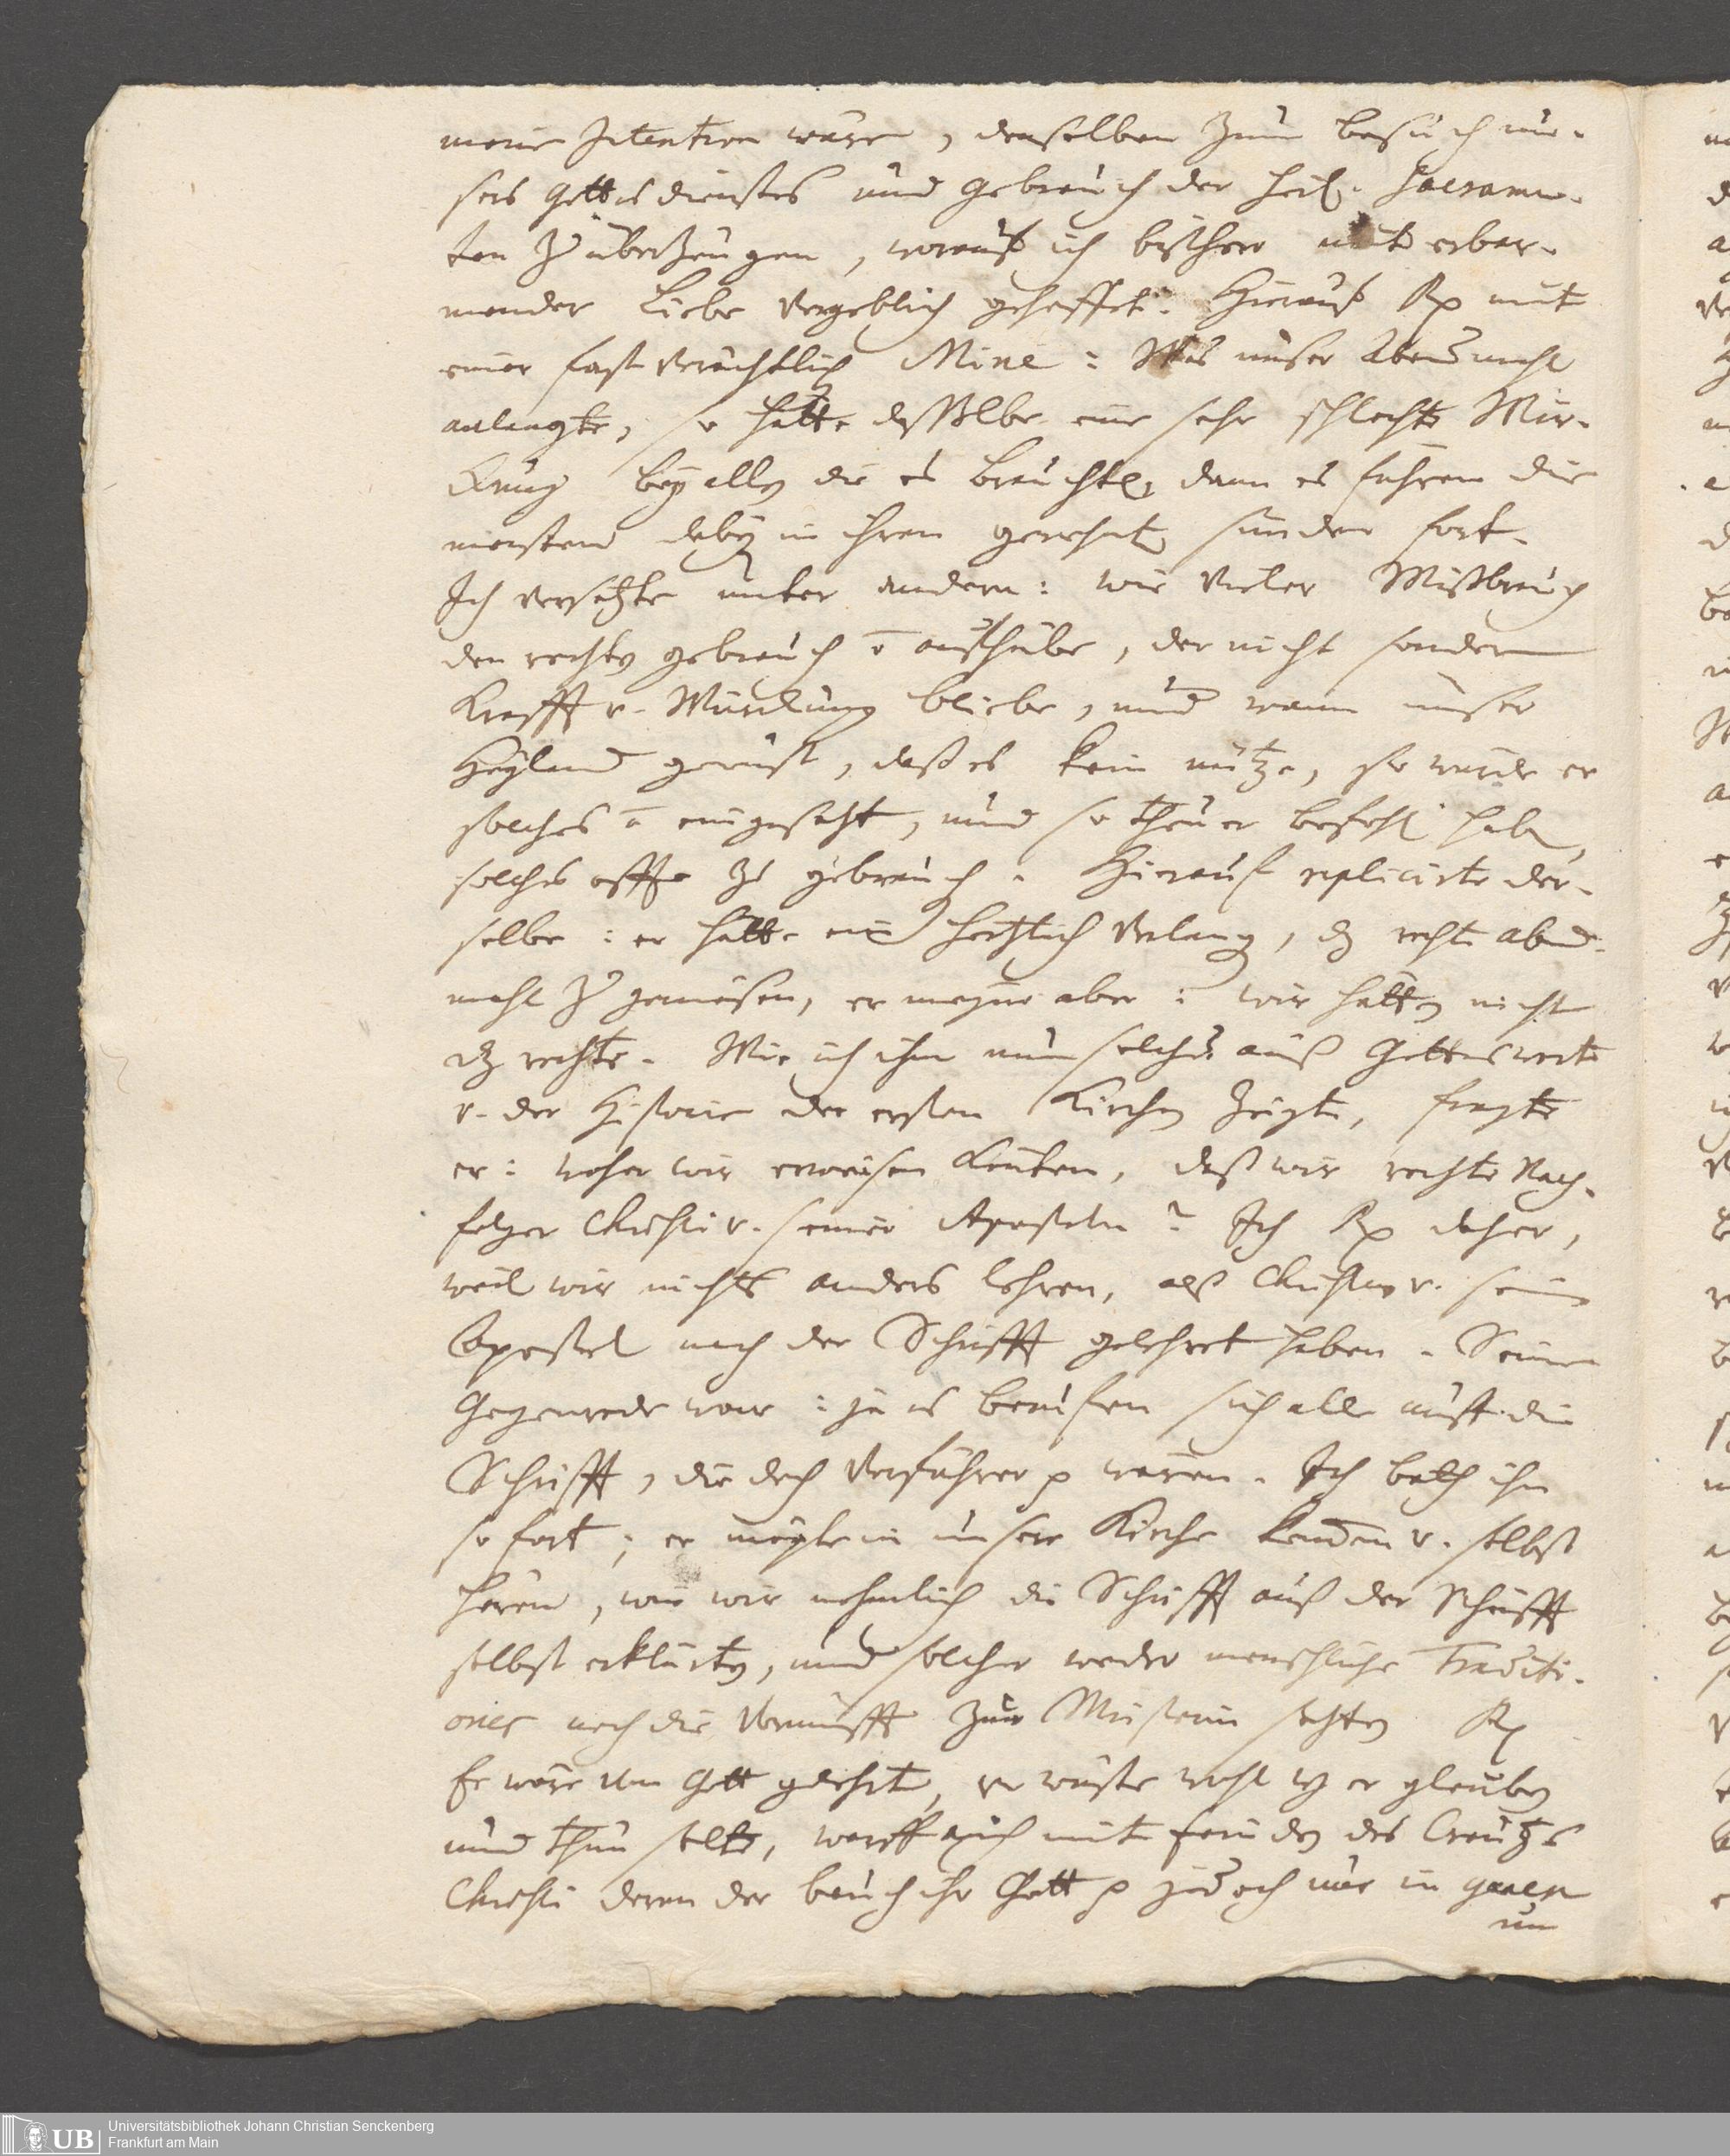 meine Intention wäre, denselben zum besuch un-
sers Gottesdienstes und gebrauch der heil. Sacramen-
ten zu überzeugen, worauf ich bißhero mit erbar-
mender Liebe vergeblich gehoffet. Hierauf Rp mit
einer fast verächtlich Mine: Was unser Abendmahl
anlangte, so hätte dasselbe eine sehr schlechte Wür-
ckung bey allen die es brauchten, dann es fuhren die
meisten dabey in ihren gewohnt sünden fort.
Ich versetzte unter andern: wie vieler Mißbrauch
den rechten gebrauch aufhübe, der nicht sonder
Krafft v. Würckung bliebe, und wann unser
Heyland gewust, daß es kein nütze, so würde er
solches eingesetzt, und so theuer befohl haben,
solches offte zu gebrauch. Hierauf replicirte der-
selbe: er hätte ein hertzlich verlang, dz rechte abend-
mahl zu geniesen, er meyne aber: wir hätten nicht
dz rechte. Wie ich ihm nun solches auß Gottes wort
v. der Historie der ersten Kirchen zeigte, fragte
er: woher wir erweisen könten, daß wir rechte Nach-
folger Christi v. seiner Aposteln? Ich Rp daher,
weil wir nichts anders lehren, alß Christus v. seine
Apostel nach der Schrifft gelehret haben. Seine
Gegenrede war: ja es beruffen sich alle auff die
Schrifft, die doch Verführer p wären. Ich bath ihn
so fort; er mögte in unsere Kirche kommen v. selbst
hören, wie wir nehmlich die Schrifft auß der Schrifft
selbst erklärten, und solcher weder menschliche Traditi-
ones noch die Vernunfft zur Meisterin setzten Rp
Er wäre von Gott gelehrt, er wüste wohl wz er glauben
und thun solte, warff auch mit feinden des Creutzes
Christi deren der bauch ihr Gott p jedoch nur in
um
UB Universitätsbibliothek Johann Christian Senckenberg
Frankfurt am Main